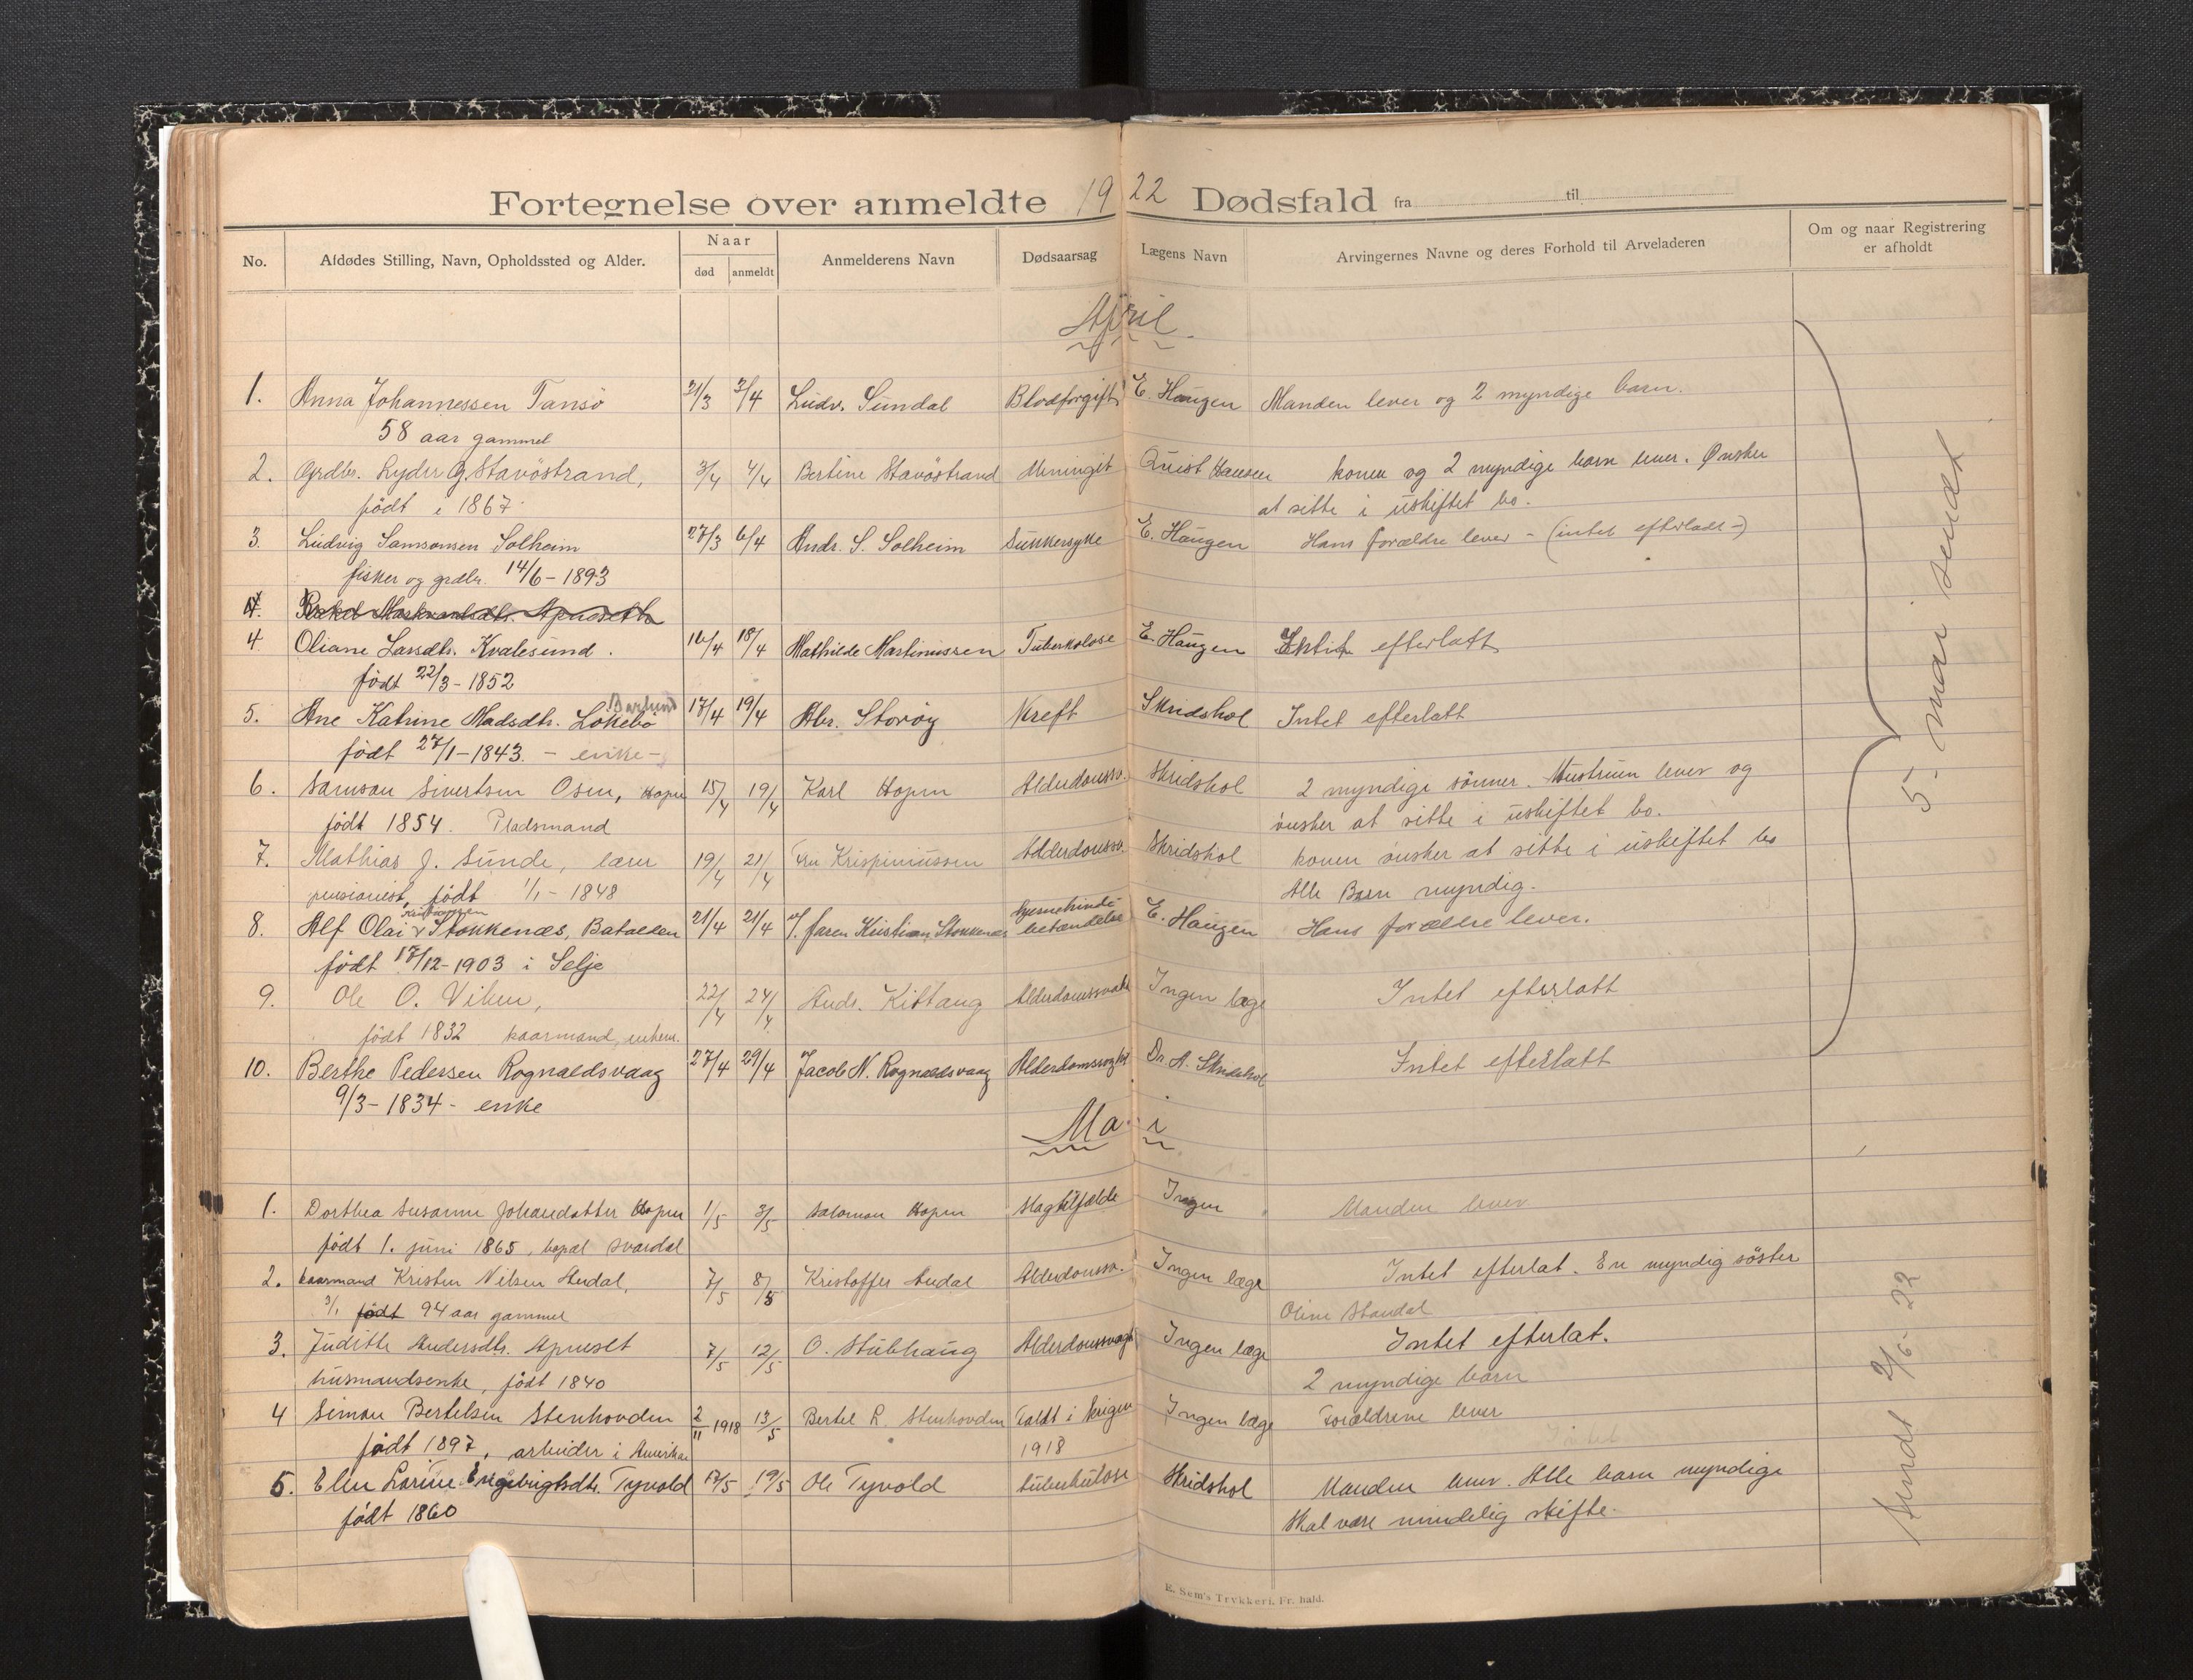 Fortegnelse over anmeldte 1922 Dødsfald fra til
No.
Afdødes Stilling, Navn, Opholdssted og Alder.
Naar
død
anmeldt
Anmelderens Navn
Dødsaarsag
Lægens Navn
Arvingernes Navne og deres Forhold til Arveladeren
Om og naar Registrering
er afholdt
April
1. Anna Johannessen Tansö 31/3 3/4 Ludv. Sundal Blodforgift. E. Haugen Manden lever og 2 myndige barn.
58 aar gammel
2. Grdbr. Lyder G. Stavöstrand, 3/4 4/4 Bertine Stavöstrand Meningit Quist Hansen konen og 2 myndige barn lever. Ønsker
født i 1867. at sitte i uskiftet bo.
3. Ludvig Samsonsen Solheim 27/3 6/4 Andr. S. Solheim Sukkersyke E. Haugen Hans forældre lever - (intet efterladt -)
fisker og grdbr. 14/6-1893
4. Apneseth
4. Oliane Larsdtr. Kvalesund. 16/4 18/4 Mathilde Martinussen Tuberkolose E. Haugen Intet efterlatt
født 22/3-1852
5. Ane Katrine Madsdtr. Lökebö 17/4 19/4 Abr. Storöy Kreft Skridshol Intet efterlatt
født 27/1-1843. - enke -
6. Samson Sivertsen Osen, Hopen 15/4 19/4 Karl Hopen Alderdomssv. Skridshol 2 myndige sönner. Hustruen lever og
født 1854. Pladsmand önsker at sitte i uskiftet bo.
7. Mathias J. Sunde, lærer 19/4 21/4 Fru Krispinussen Alderdomssv. Skridshol konen önsker at sitte i uskiftet bo
pensionist, født 1/1-1848 Alle Barn myndig.
8. Alf Olai Kristiansen Stokkenæs, Batalden 21/4 21/4 V. faren Kristian Stokkenæs hjernehinde-
betændelse E. Haugen Hans forældre lever.
født 17/12-1903 i Selje
9. Ole O. Viken, 22/4 24/4 Ands. Kittang Alderdomssvakh Ingen læge Intet efterlatt
født 1832 kaarmand, enkem.
10. Berthe Pedersen Rognaldsvaag 27/4 29/4 Jacob N. Rognaldsvaag Alderdomssvakh Dr. A. Skridshol Intet efterlatt
9/3-1834 - enke
5. mai sendt
Mai
1. Dorthea Susanne Johansdatter Hopen 1/5 3/5 Salomon Hopen Slagtilfælde Ingen Manden lever
født 1. juni 1865, bopæl Svardal
2. kaarmand Kristen Nilsen Audal, 7/5 8/5 Kristoffer Audal Alderdomssv. Ingen læge Intet efterlat. En myndig söster
3/1 født 94 aar gammel Oline Standal
3. Judithe Andersdtr. Apneset 7/5 12/5 O. Stubhaug Alderdomssvagh Ingen læge Intet efterlat.
husmandsenke, født 1840 2 myndige barn
4 Simon Bertelsen Stenhovden 2/11 1918 13/5 Bertel R. Stenhovden Faldt i krigen Ingen læge Forældrene lever
født 1897, arbeider i Amerika 1918
5. Elen Lorine Engebrigtsdtr. Tyvold 17/5 19/5 Ole Tyvold tuberkulose Skridshol Manden lever. Alle barn myndige
født 1860 Skal være mindelig skifte.
sendt 2/6-22
E. Sem's Trykkeri, Fr.hald.